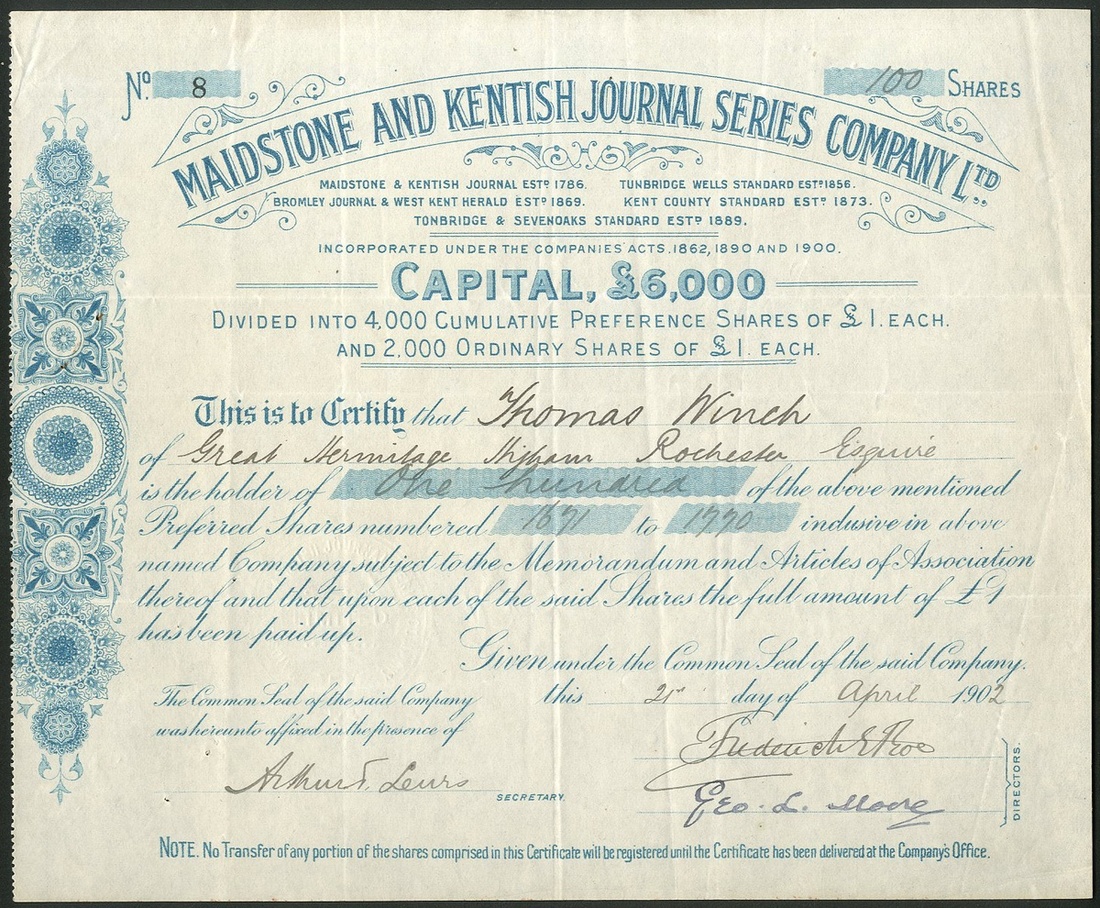 No. 8
100 SHARES
MAIDSTONE AND KENTISH JOURNAL SERIES COMPANY LTD
MAIDSTONE & KENTISH JOURNAL ESTD 1786. TUNBRIDGE WELLS STANDARD ESTD 1856.
BROMLEY JOURNAL & WEST KENT HERALD ESTD 1869. KENT COUNTY STANDARD ESTD 1873.
TONBRIDGE & SEVENOAKS STANDARD ESTD 1889.
INCORPORATED UNDER THE COMPANIES ACTS. 1862, 1890 AND 1900.
CAPITAL, £6,000
DIVIDED INTO 4,000 CUMULATIVE PREFERENCE SHARES OF £1. EACH.
AND 2.000 ORDINARY SHARES OF £1. EACH.
This is to Certify that Thomas Winch
of Great Hermitage Higham Rochester Esquire
is the holder of One hundred of the above mentioned
Preferred Shares numbered 1671 to 1770 inclusive in above
named Company subject to the Memorandum and Articles of Association
thereof and that upon each of the said Shares the full amount of £1
has been paid up.
Given under the Common Seal of the said Company.
this 21st day of April 1902
The Common Seal of the said Company
was hereunto affixed in the presence of
Frederick E Roe
Arthur T. Lewis
SECRETARY.
Geo. L. Moore
DIRECTORS.
NOTE. No Transfer of any portion of the shares comprised in this Certificate will be registered until the Certificate has been delivered at the Company's Office.